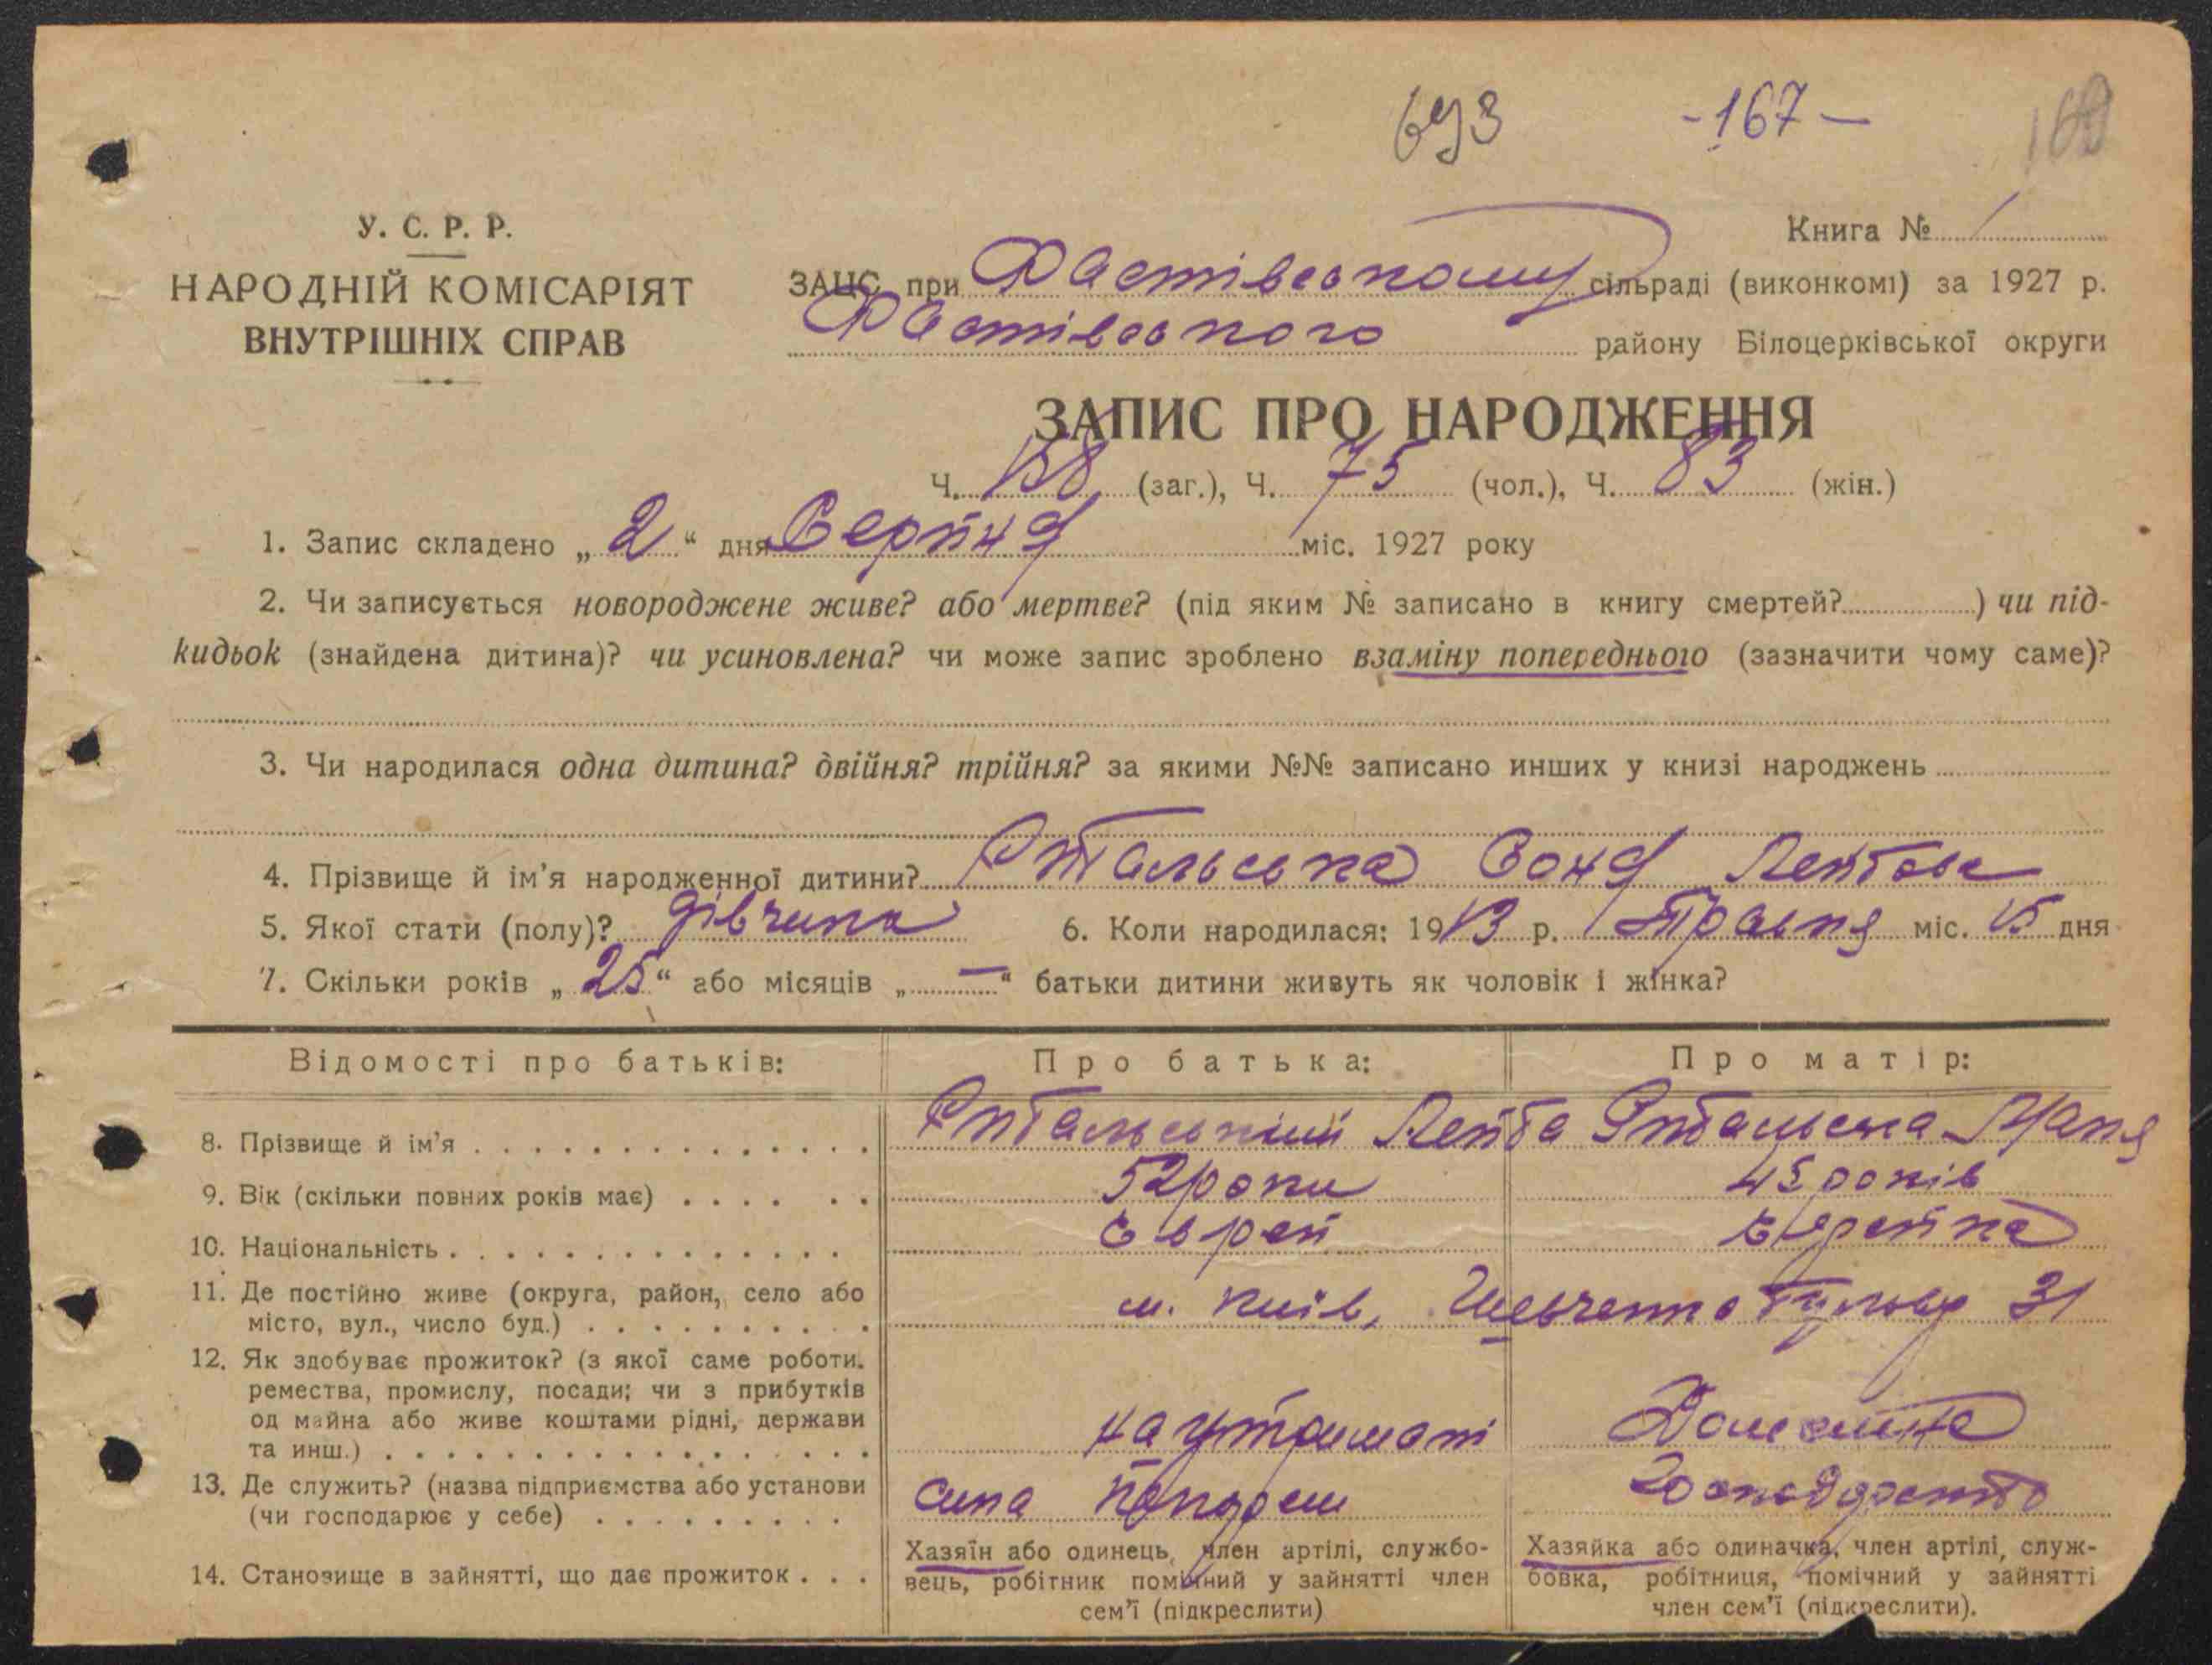 693 -167- 169
У. С. Р. Р.
НАРОДНІЙ КОМІСАРІЯТ
ВНУТРІШНІХ СПРАВ
Книга № 1
ЗАЦС при Фастівському сільраді (виконкомі) за 1927 р.
Фастівського району Білоцерківської округи
ЗАПИС ПРО НАРОДЖЕННЯ
Ч. 158 (заг.), Ч. 75 (чол.), Ч. 83 (жін.)
1. Запис складено „ 2 “ дня Серпня міс. 1927 року
2. Чи записується новороджене живе? або мертве? (під яким № записано в книгу смертей? ) чи під-
кидьок (знайдена дитина)? чи усиновлена? чи може запис зроблено взаміну попереднього (зазначити чому саме)?
3. Чи народилася одна дитина? двійня? трійня? за якими №№ записано инших у книзі народжень
4. Прізвище й ім'я народженної дитини? Соня
5. Якої статі (полу)? дівчина 6. Коли народилася: 1913 р. Травня міс. 15 дня
7. Скільки років „ 25 “ або місяців „ — “ батьки дитини живуть як чоловік і жінка?
Відомості про батьків: Про батька: Про матір:
8. Прізвище й ім'я Лейба
9. Вік (скільки повних років має) 52 роки 45 років
10. Національність Еврей Еврейка
11. Де постійно живе (округа, район, село або
місто, вул., число буд.) м. Київ, Шевченко бульвар 31
12. Як здобуває прожиток? (з якої саме роботи.
ремества, промислу, посади; чи з прибутків
од майна або живе коштами рідні, держави
та инш.) на утримані Домашнє
13. Де служить? (назва підприємства або установи
(чи господарює у себе) сина господарство
14. Становище в зайнятті, що дає прожиток
Хазяїн або одинець, член артілі, службо-
вець, робітник помічний у зайнятті член
сем'ї (підкреслити)
Хазяйка або одиначка, член артілі, служ-
бовка, робітниця, помічний у зайнятті
член сем'ї (підкреслити).